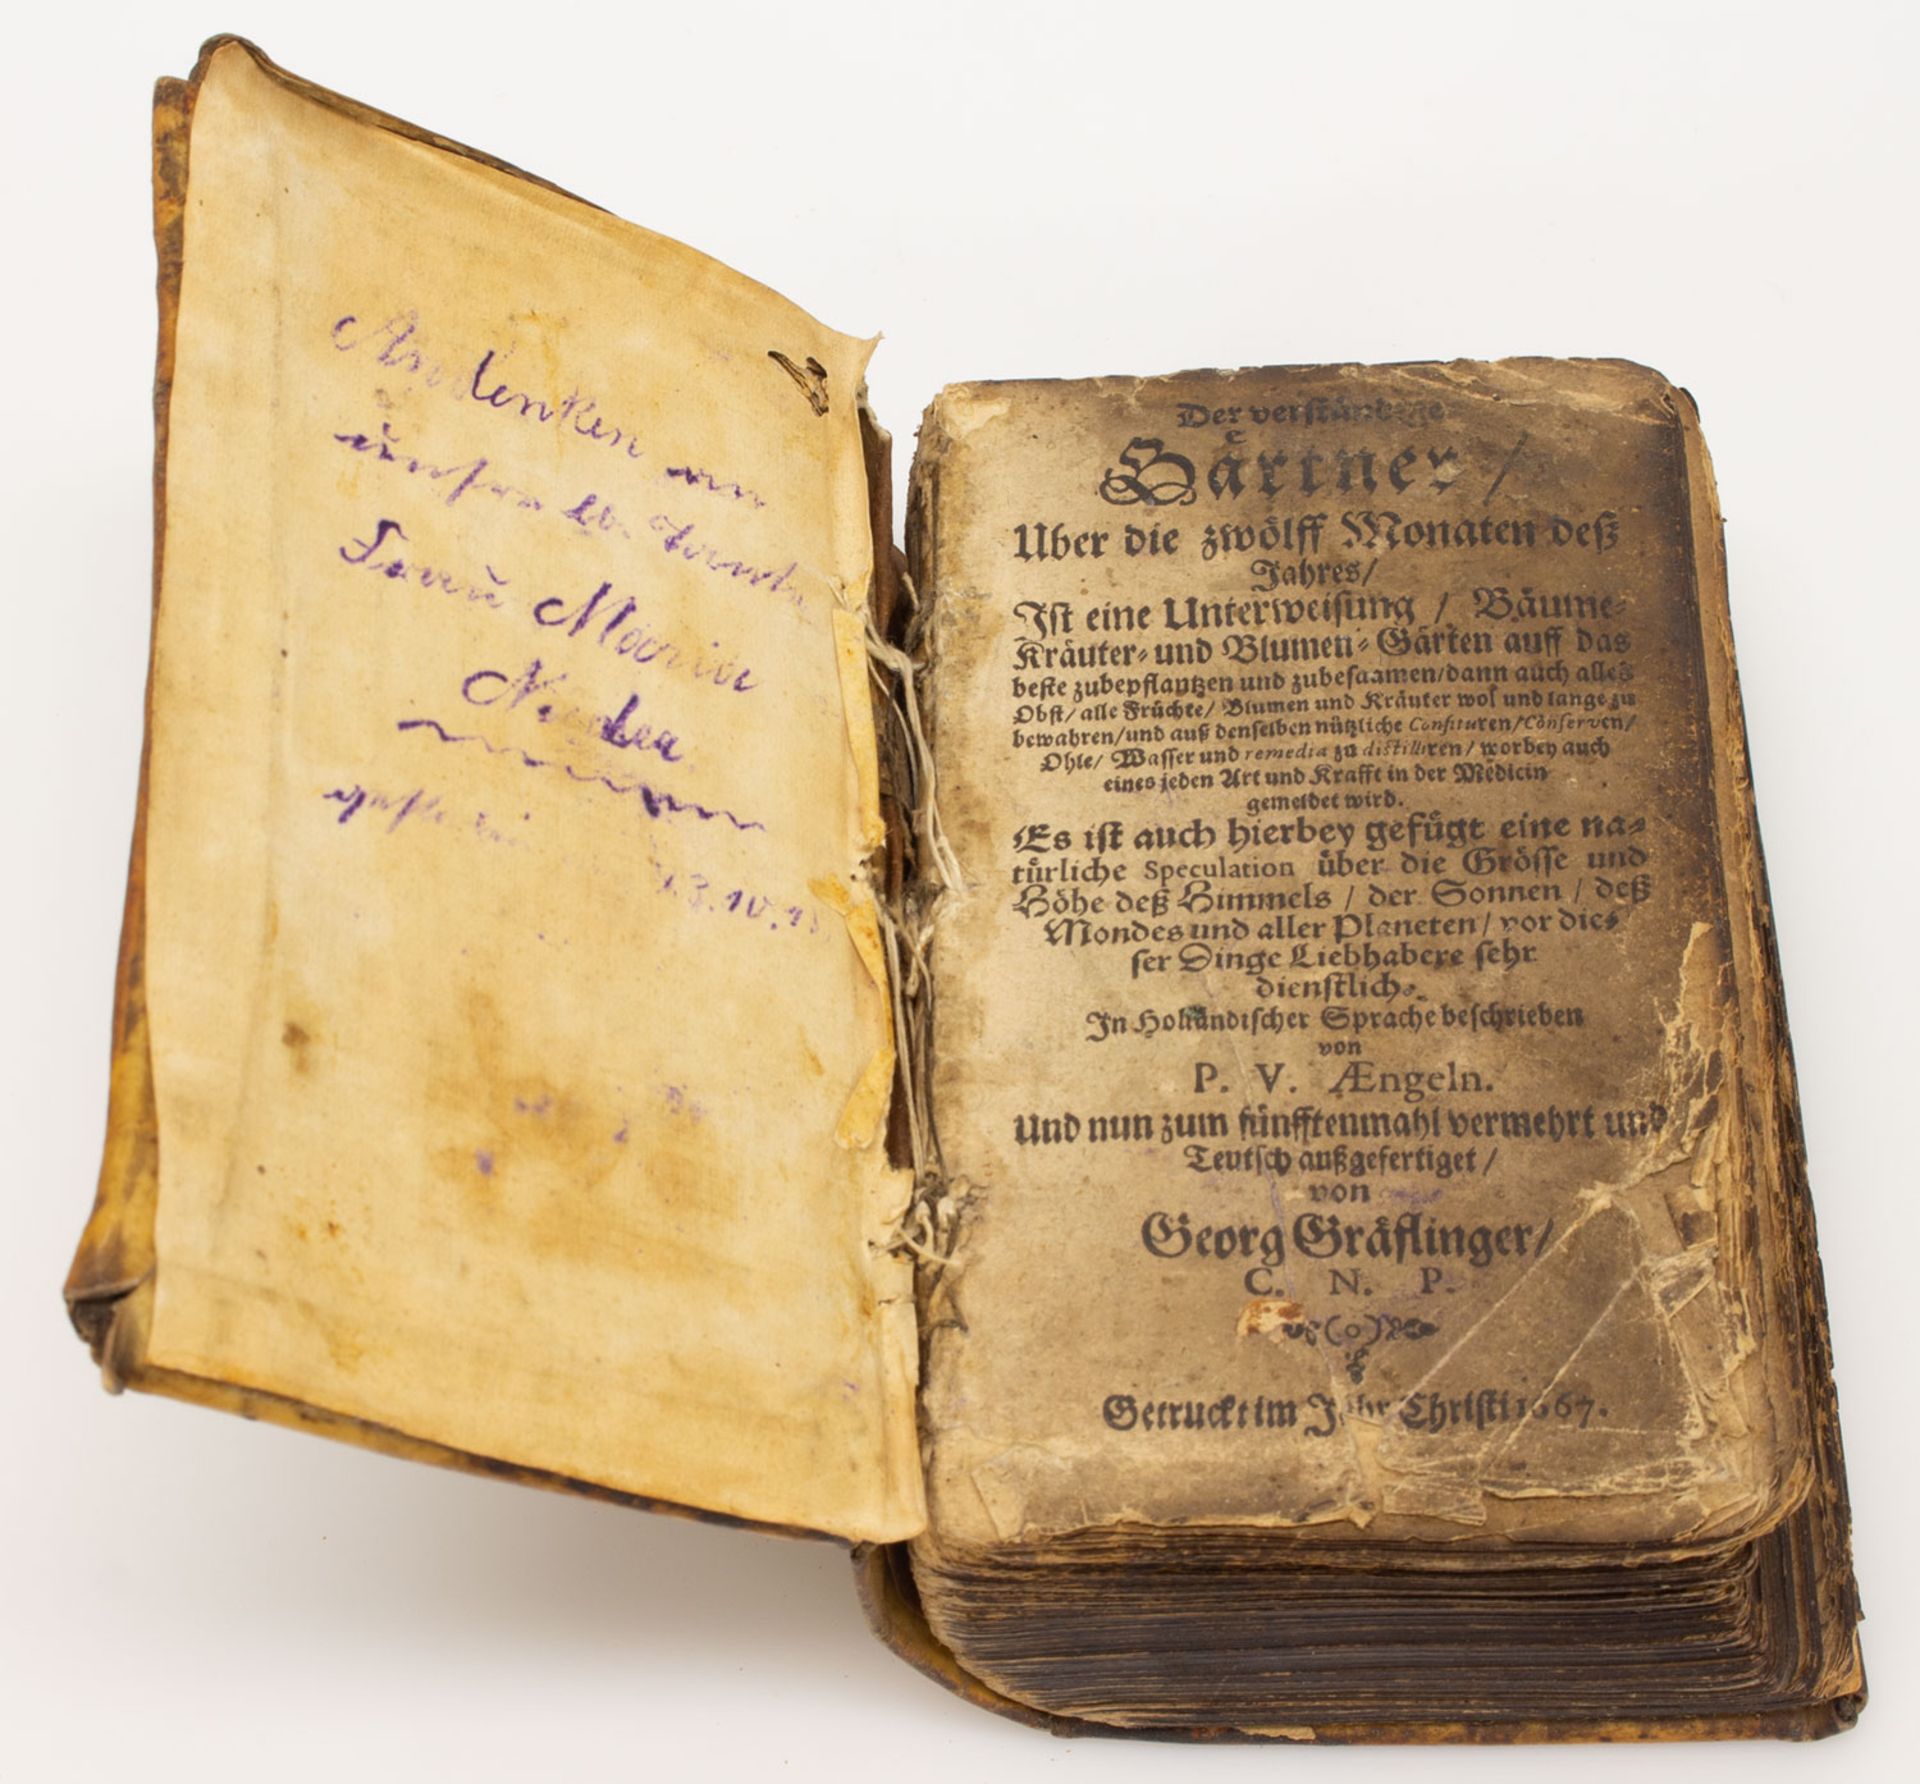 Andenken an
unsre lb. Tante
Frau Maria
gest.
Der verständige
Gärtner /
Uber die zwölff Monaten deß
Jahres /
Ist eine Unterweisung / Bäume-
Kräuter- und Blumen-Gärten auff das
beste zubepflantzen und zubesaamen / dann auch alles
Obst / alle Früchte / Blumen und Kräuter wol und lange zu
bewahren / und auß denselben nützliche Confituren / Conserven /
Ohle / Wasser und remedia zu distilliren / worbey auch
eines jeden Art und Krafft in der Medicin
gemeldet wird.
Es ist auch hierbey gefügt eine na-
türliche Speculation über die Grösse und
Höhe deß Himmels / der Sonnen / deß
Mondes und aller Planeten / vor die-
ser Dinge Liebhabere sehr
dienstlich.
In Holländischer Sprache beschrieben
von
P. V. Ængeln.
Und nun zum fünfftenmahl vermehrt und
Teutsch außgefertiget /
von
Georg Gräflinger /
C. N. P.
Getruckt im Jahr Christi 1667.